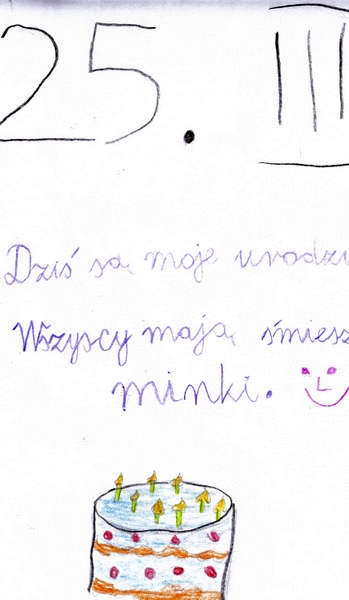 25. III
Dziś są moje urodzi
Wszyscy mają śmiesz
minki.